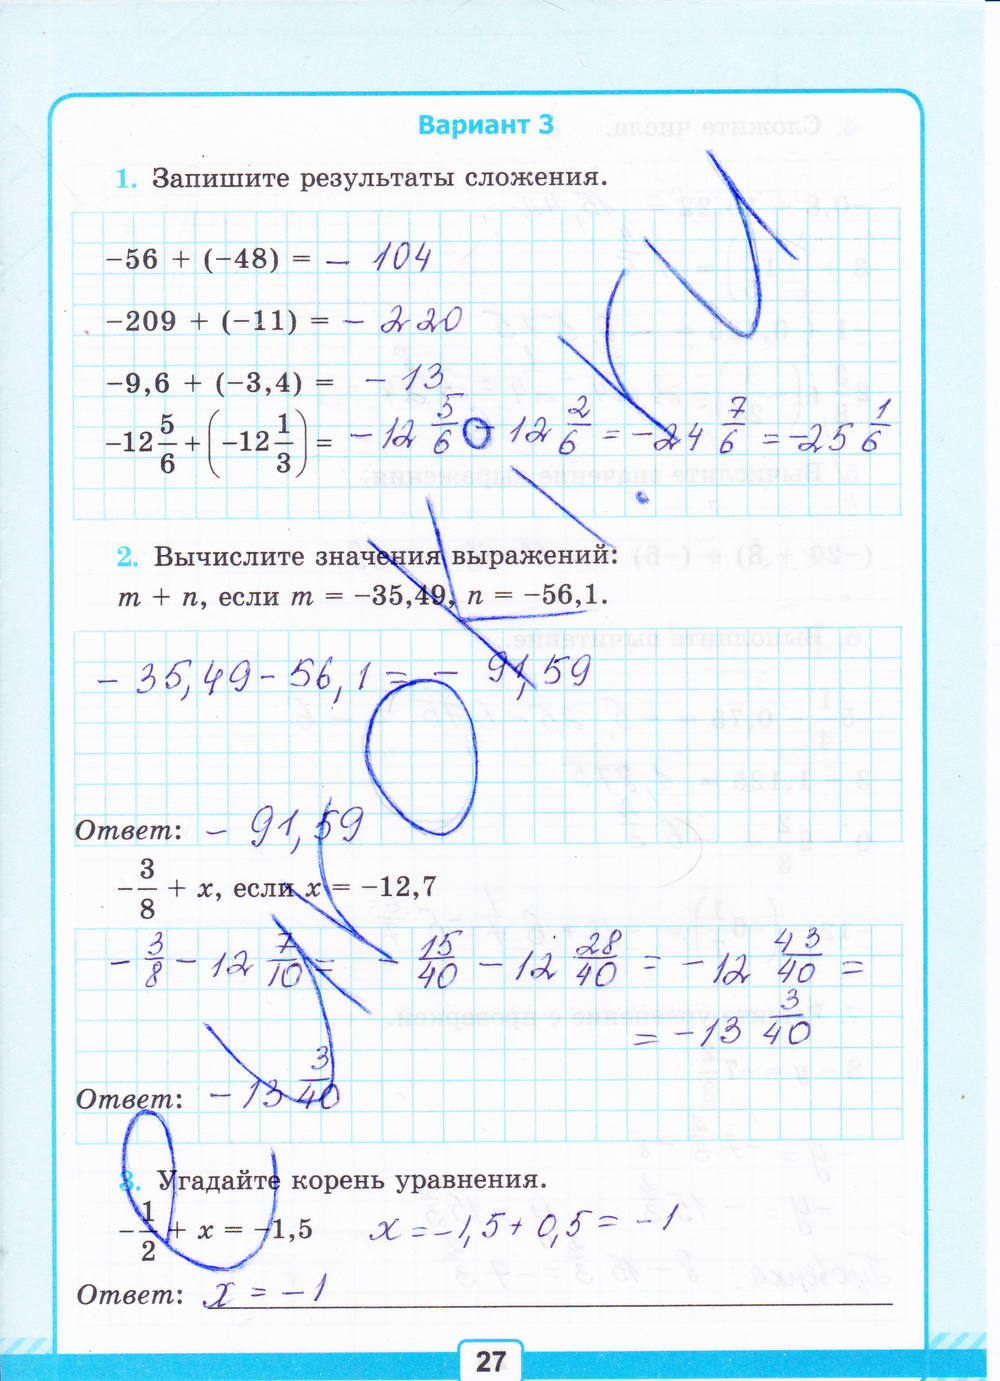 Вариант 3
1. Запишите результаты сложения.
-56 + (-48) = - 104
-209 + (-11) = - 220
-9,6 + (-3,4) = - 13
-12 5/6 + (-12 1/3) = -12 5/6 - 12 2/6 = -24 7/6 = -25 1/6
2. Вычислите значения выражений:
m + n, если m = -35,49, n = -56,1.
- 35,49 - 56,1 = - 91,59
Ответ: - 91,59
-3/8 + x, если x = -12,7
- 3/8 - 12 7/10 = - 15/40 - 12 28/40 = - 12 43/40 =
= - 13 3/40
Ответ: - 13 3/40
3. Угадайте корень уравнения.
-1/2 + x = -1,5 x = -1,5 + 0,5 = -1
Ответ: x = -1
27